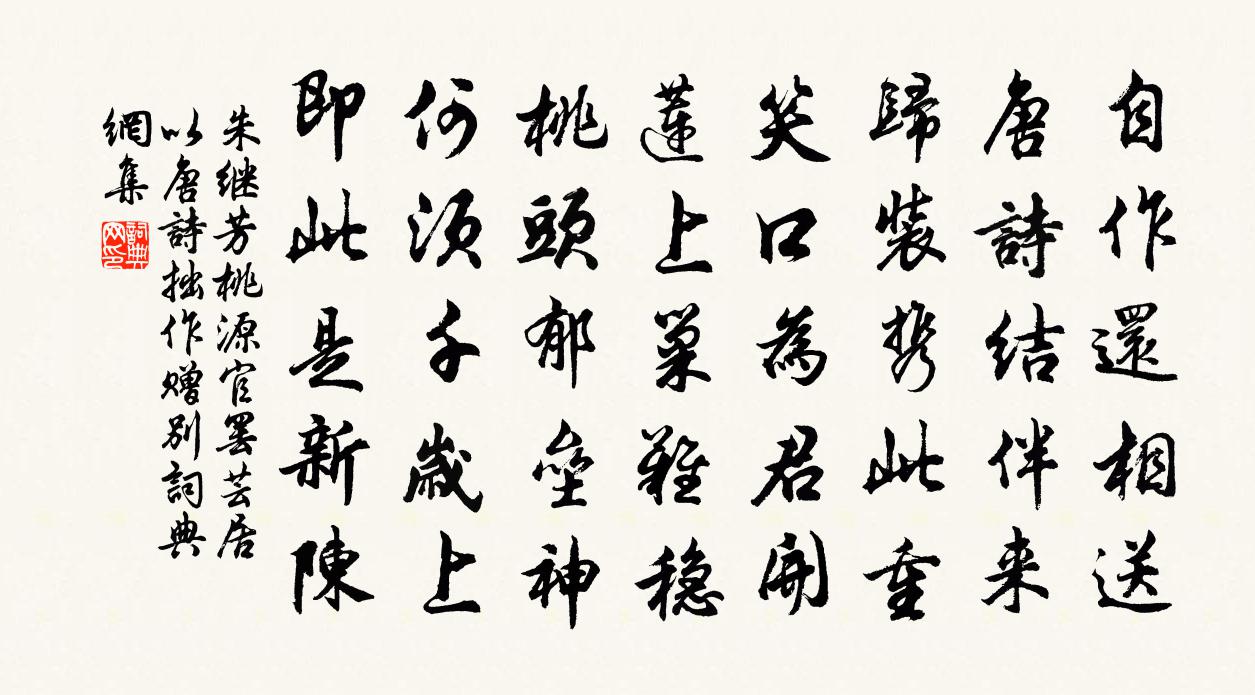 自作還相送
唐詩结伴来
歸裝携此重
笑口為君開
蓮上巢難穩
桃頭郁壘神
何須千歲上
即此是新陳
朱继芳桃源官罢芸居
以唐詩拙作赠别詞典
網集
詞典
网印